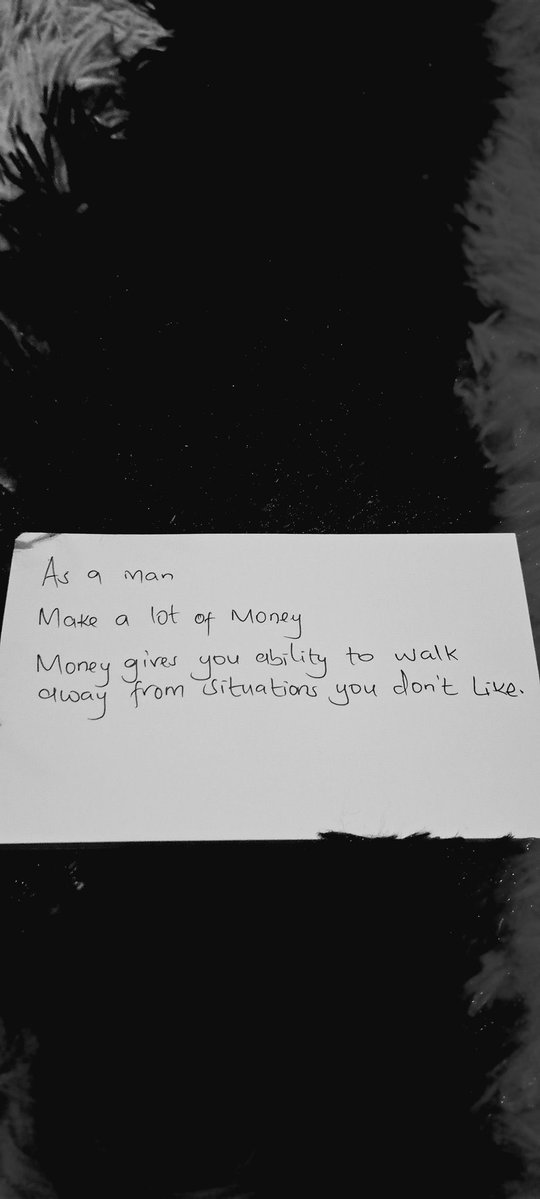 As a man
Make a lot of Money
Money gives you ability to walk
away from situations you don't Like.